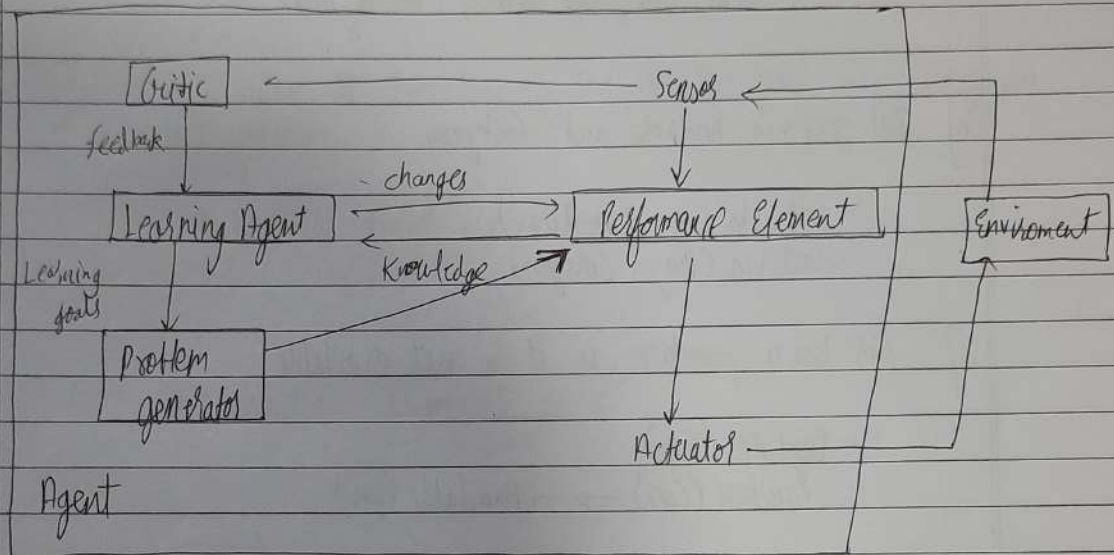 Critic
Sensor
feedback
changes
Learning Agent
Performance Element
Enviroment
Knowledge
Learning
goals
Problem
generator
Actuator
Agent